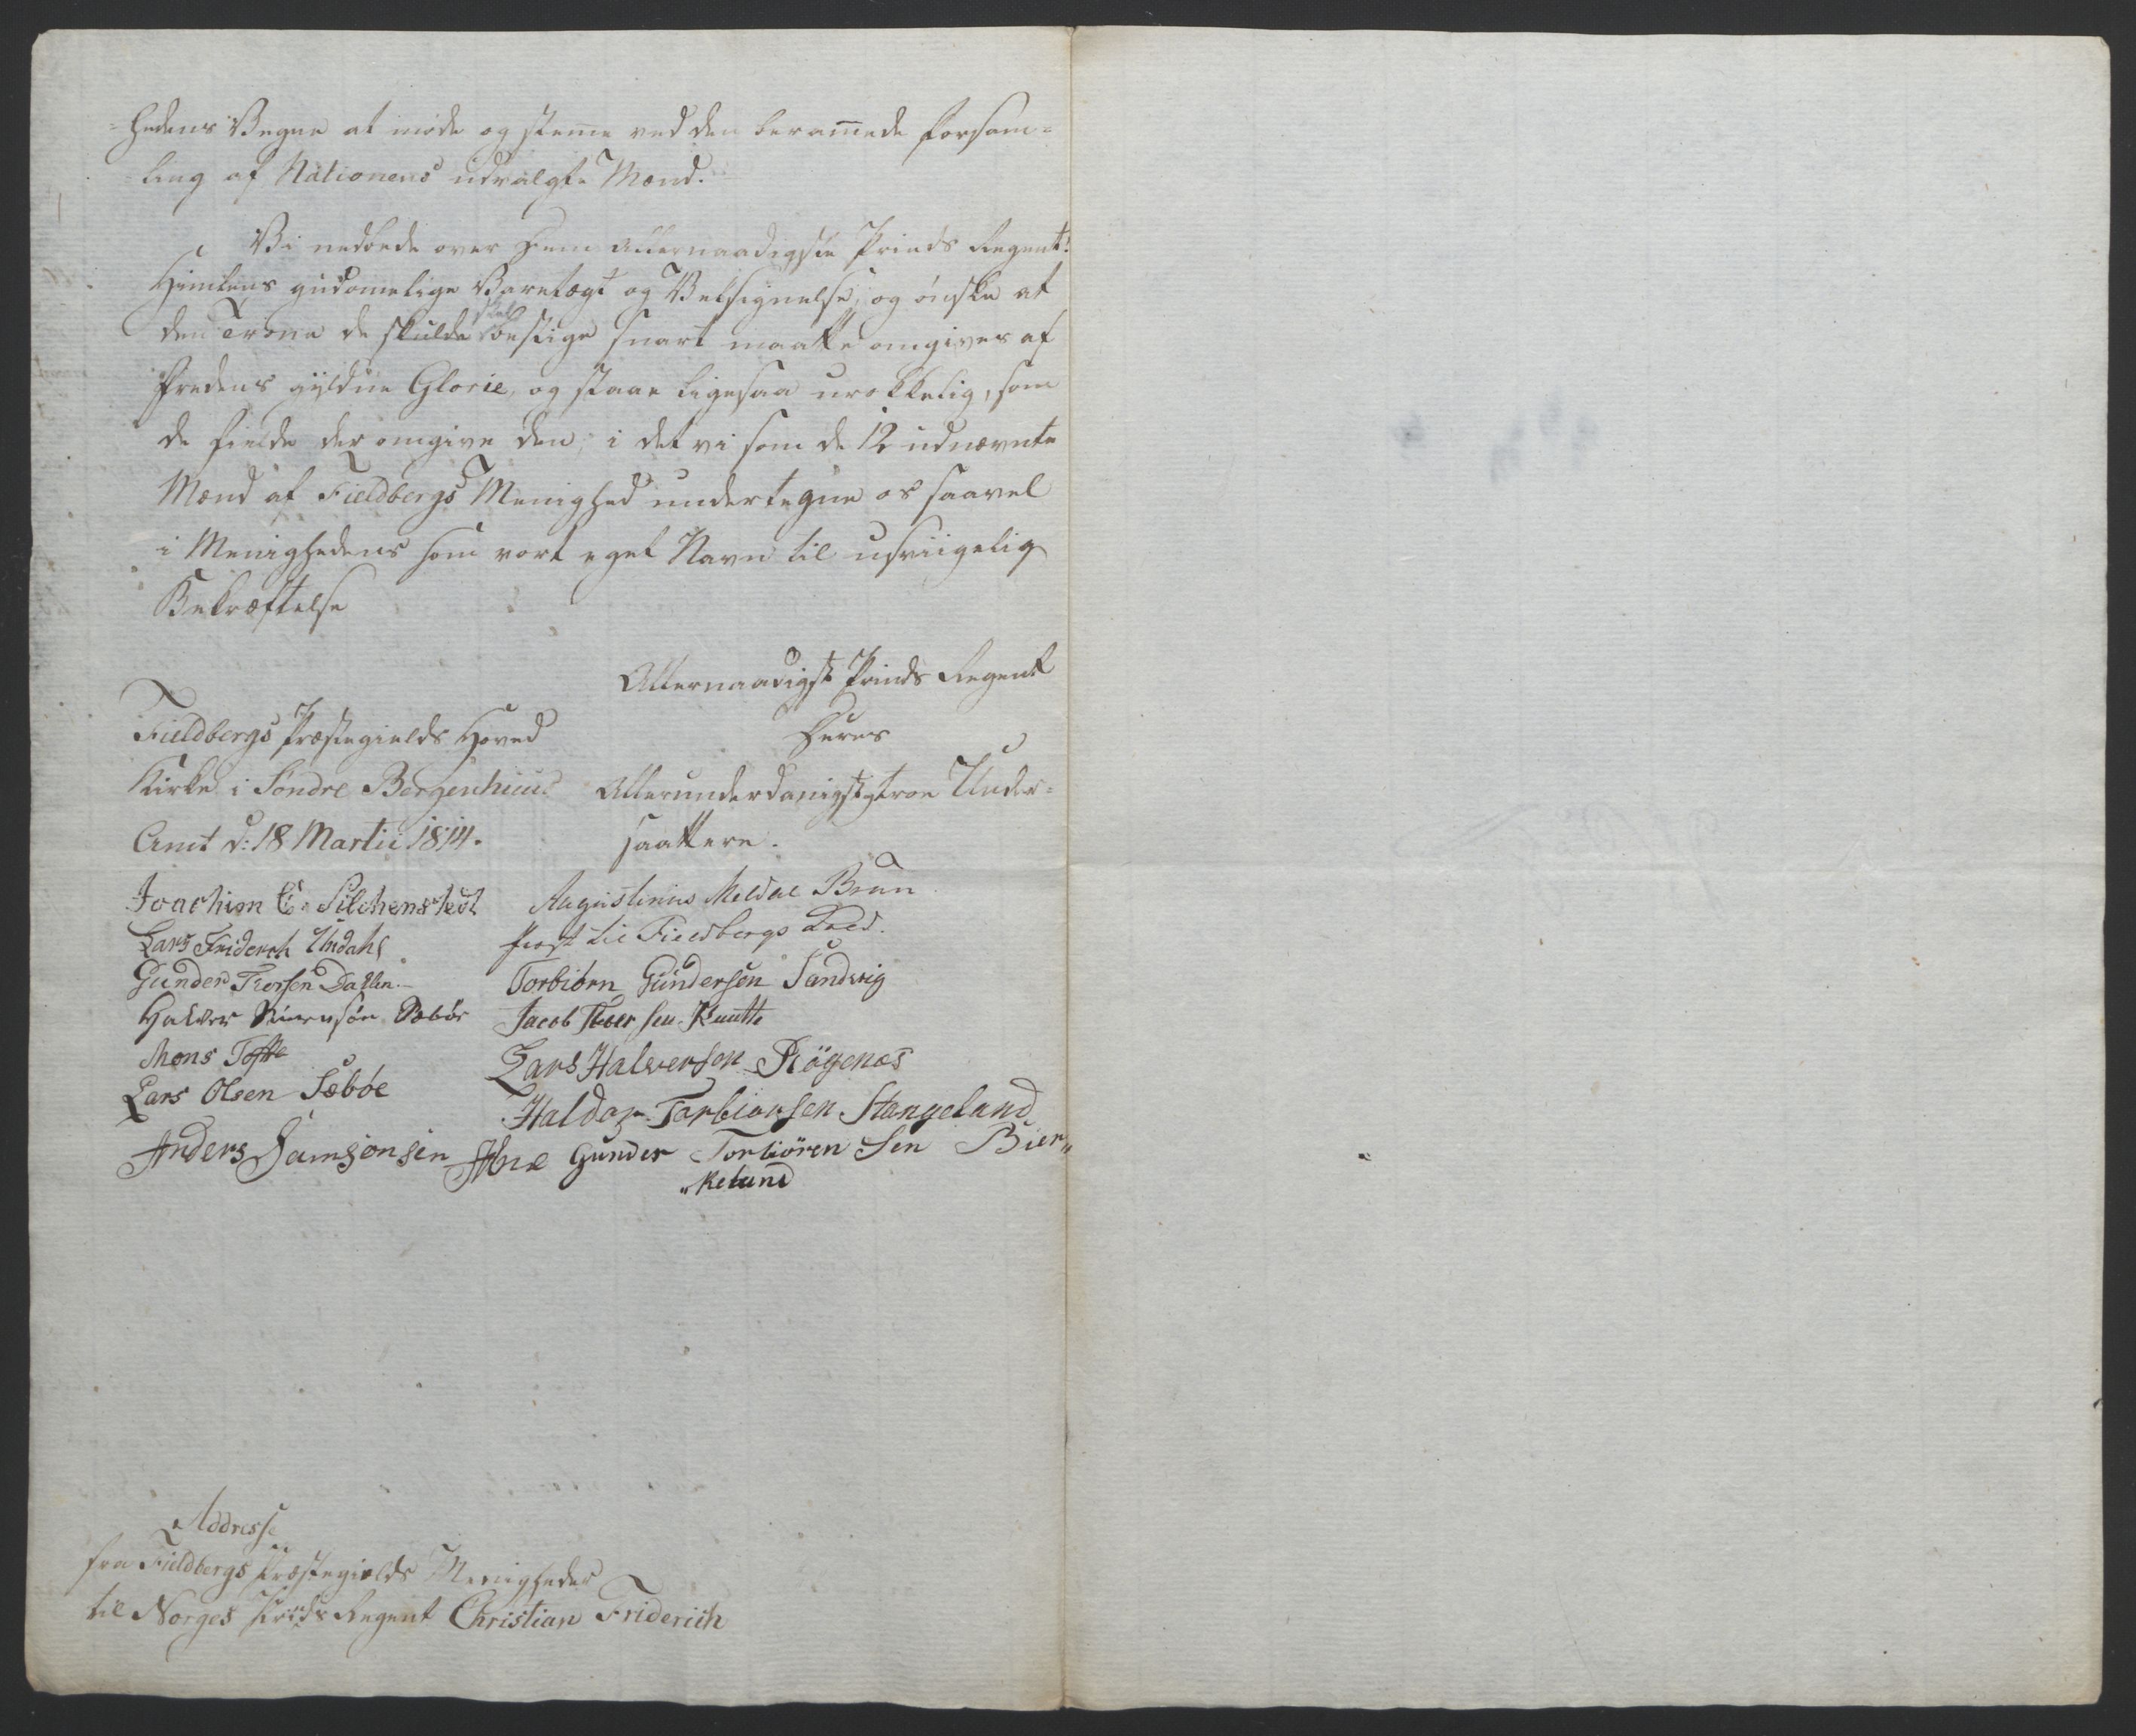 -hedens Vegne at møde og steme ved den beramede forsam-
ling af Nationens udvalgte Mænd.
Vi nedbede over Dem Allernaadigste Prinds Regent!
Himlens gudomelige Varetægt og Velsignelse, og ønske at
den Trone de skulde skal bestige snart maatte omgives af
Fredens gyldne Glorie, og staae ligesaa urokkelig, som
de Fielde der omgive den, i det vi som de 12 udnævnte
Mænd af Fieldbergs Menighed undertegne os saavel
i Menighedens som vort eget Navn til usviigelig
Bekræftelse
Allernaadigst Prinds Regent
Deres
Allerunderdanigst troe Under-
saattere.
Fieldbergs Præstegields Hoved
Kirke i Søndre Bergenhuus
Amt d: 18 Martii 1814.
Joachim C. Lilchenstedt
Lars Friderch Undahl
Gunder Torsen Dahlen
Halver Sæbøe
Mons Tofte
Lars Olsen Sæbøe
Anders Samsonsen
Augustinus Meldal Brun
Præst til Fieldbergs Kald.
Torbiørn Gundersøn Sandvig
Jacob Iversen
Lars Halversen Røgenæs
Haldor Torbiønsen Stangeland
Gunder Torbiørensen Bier„
„keland
Addresse
fra Fieldbergs Præstegields Menigheder
til Norges Prinds Regent Christian Friderich